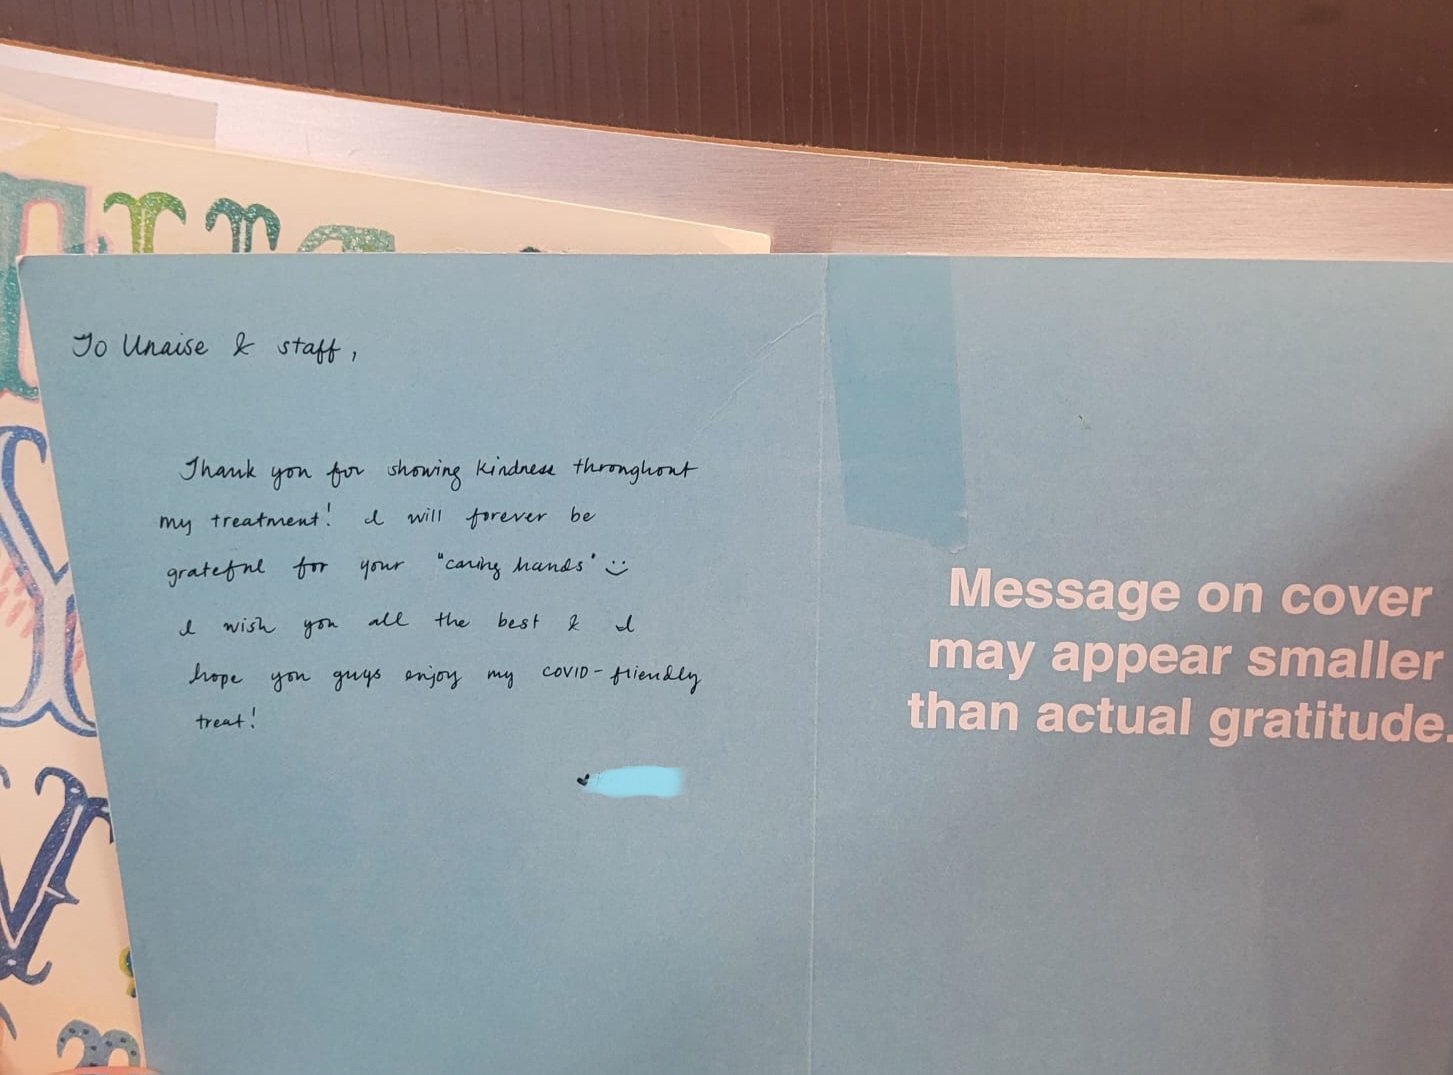 To Unaise & staff,
Thank you for showing kindness throughout
my treatment! I will forever be
grateful for your "caring hands" :)
I wish you all the best & I
hope you guys enjoy my COVID-friendly
treat!
Message on cover
may appear smaller
than actual gratitude.